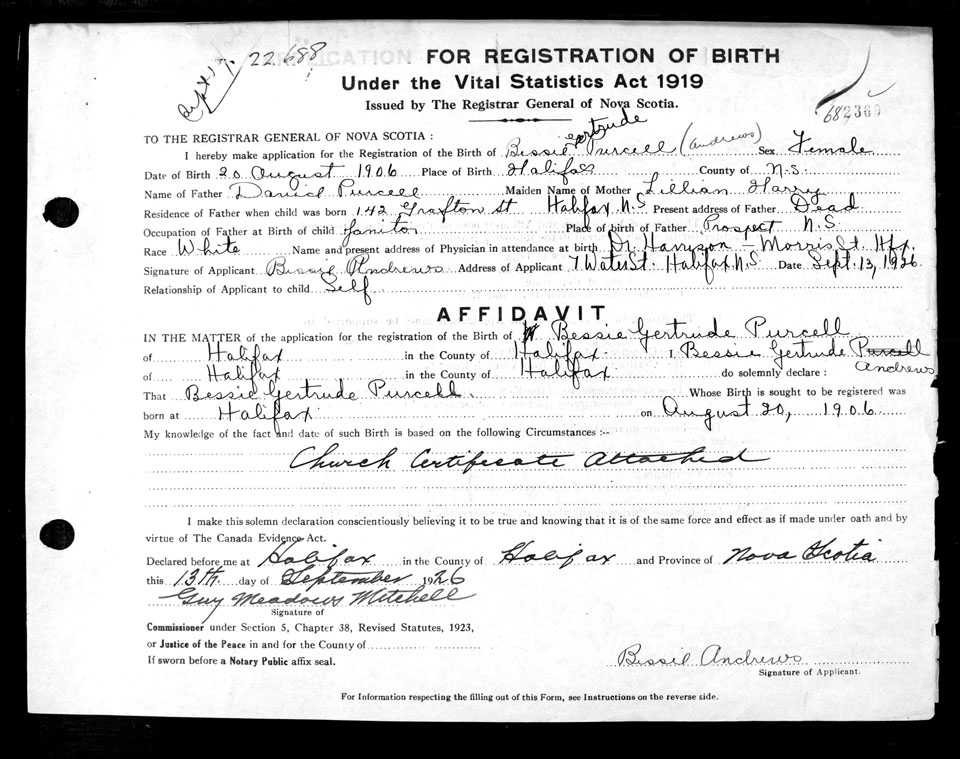 22688
FOR REGISTRATION OF BIRTH
Under the Vital Statistics Act 1919
Issued by The Registrar General of Nova Scotia.
682360
TO THE REGISTRAR GENERAL OF NOVA SCOTIA :
I hereby make application for the Registration of the Birth of Bessie Gertrude Purcell (Andrews) Sex Female
Date of Birth 20 August 1906 Place of Birth Halifax County of N-S
Name of Father Daniel Purcell Maiden Name of Mother Lillian Harry
Residence of Father when child was born 142 Grafton St Halifax N.S Present address of Father Dead
Occupation of Father at Birth of child Janitor Place of birth of Father Prospect N.S
Race White Name and present address of Physician in attendance at birth Dr. – Morris St. Hfx.
Signature of Applicant Bessie Andrews Address of Applicant 7 Water St. Halifax N.S Date Sept. 13, 1926
Relationship of Applicant to child Self
AFFIDAVIT
IN THE MATTER of the application for the registration of the Birth of Bessie Gertrude Purcell
of Halifax in the County of Halifax I, Bessie Gertrude Purcell
of Halifax in the County of Halifax do solemnly declare : Andrews
That Bessie Gertrude Purcell Whose Birth is sought to be registered was
born at Halifax on August 20, 1906
My knowledge of the fact and date of such Birth is based on the following Circumstances :--
Church Certificate Attached
I make this solemn declaration conscientiously believing it to be true and knowing that it is of the same force and effect as if made under oath and by
virtue of The Canada Evidence Act.
Declared before me at Halifax in the County of Halifax and Province of Nova Scotia
this 13th day of September 1926
Guy Meadows Mitchell
Signature of
Commissioner under Section 5, Chapter 38, Revised Statutes, 1923,
or Justice of the Peace in and for the County of
If sworn before a Notary Public affix seal.
Bessie Andrews
Signature of Applicant.
For Information respecting the filling out of this Form, see Instructions on the reverse side.